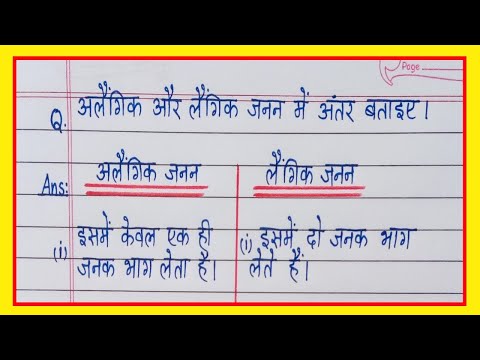 Page
Q. अलैंगिक और लैंगिक जनन में अंतर बताइए।
Ans: अलैंगिक जनन लैंगिक जनन
(i) इसमें केवल एक ही जनक भाग लेता है।
(i) इसमें दो जनक भाग लेते हैं।